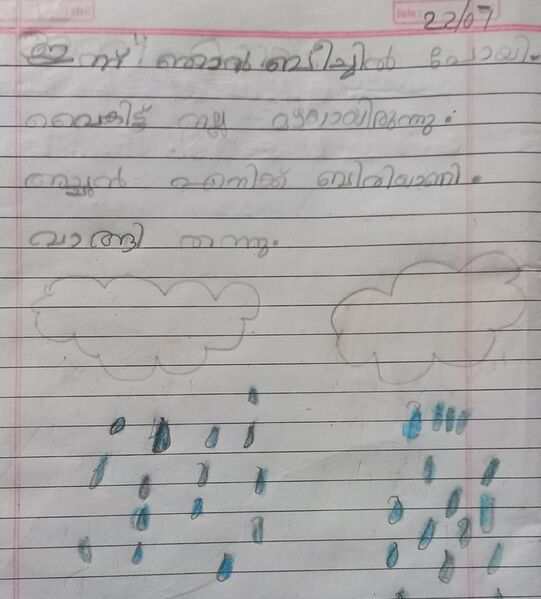 22/07
ഇന്ന് ഞാൻ ബീച്ചിൽ പോയി.
വൈകിട്ട് നല്ല മഴയായിരുന്നു.
അച്ഛൻ എനിക്ക് ബിരിയാണി.
വാങ്ങി തന്നു.